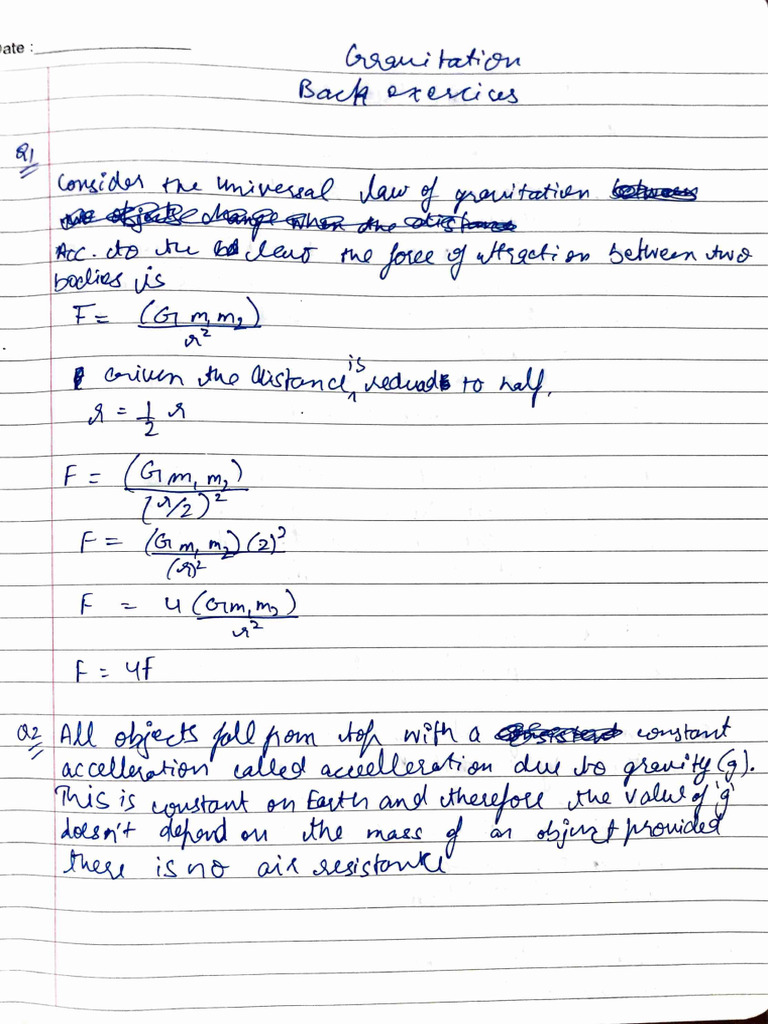 Date :
Gravitation
Back exercises
Q1
Consider the universal law of gravitation
Acc. to the law the force of attraction between two
bodies is
F = (G m₁ m₂) / r²
Given the distance is reduced to half.
r = 1/2 r
F = (G m₁ m₂) / (r/2)²
F = (G m₁ m₂) (2)² / (r)²
F = 4 (G m₁ m₂) / r²
F = 4F
Q2 All objects fall from top with a constant
accelleration called accelleration due to gravity (g).
This is constant on Earth and therefore the value of 'g'
doesn't depend on the mass of an object provided
there is no air resistance